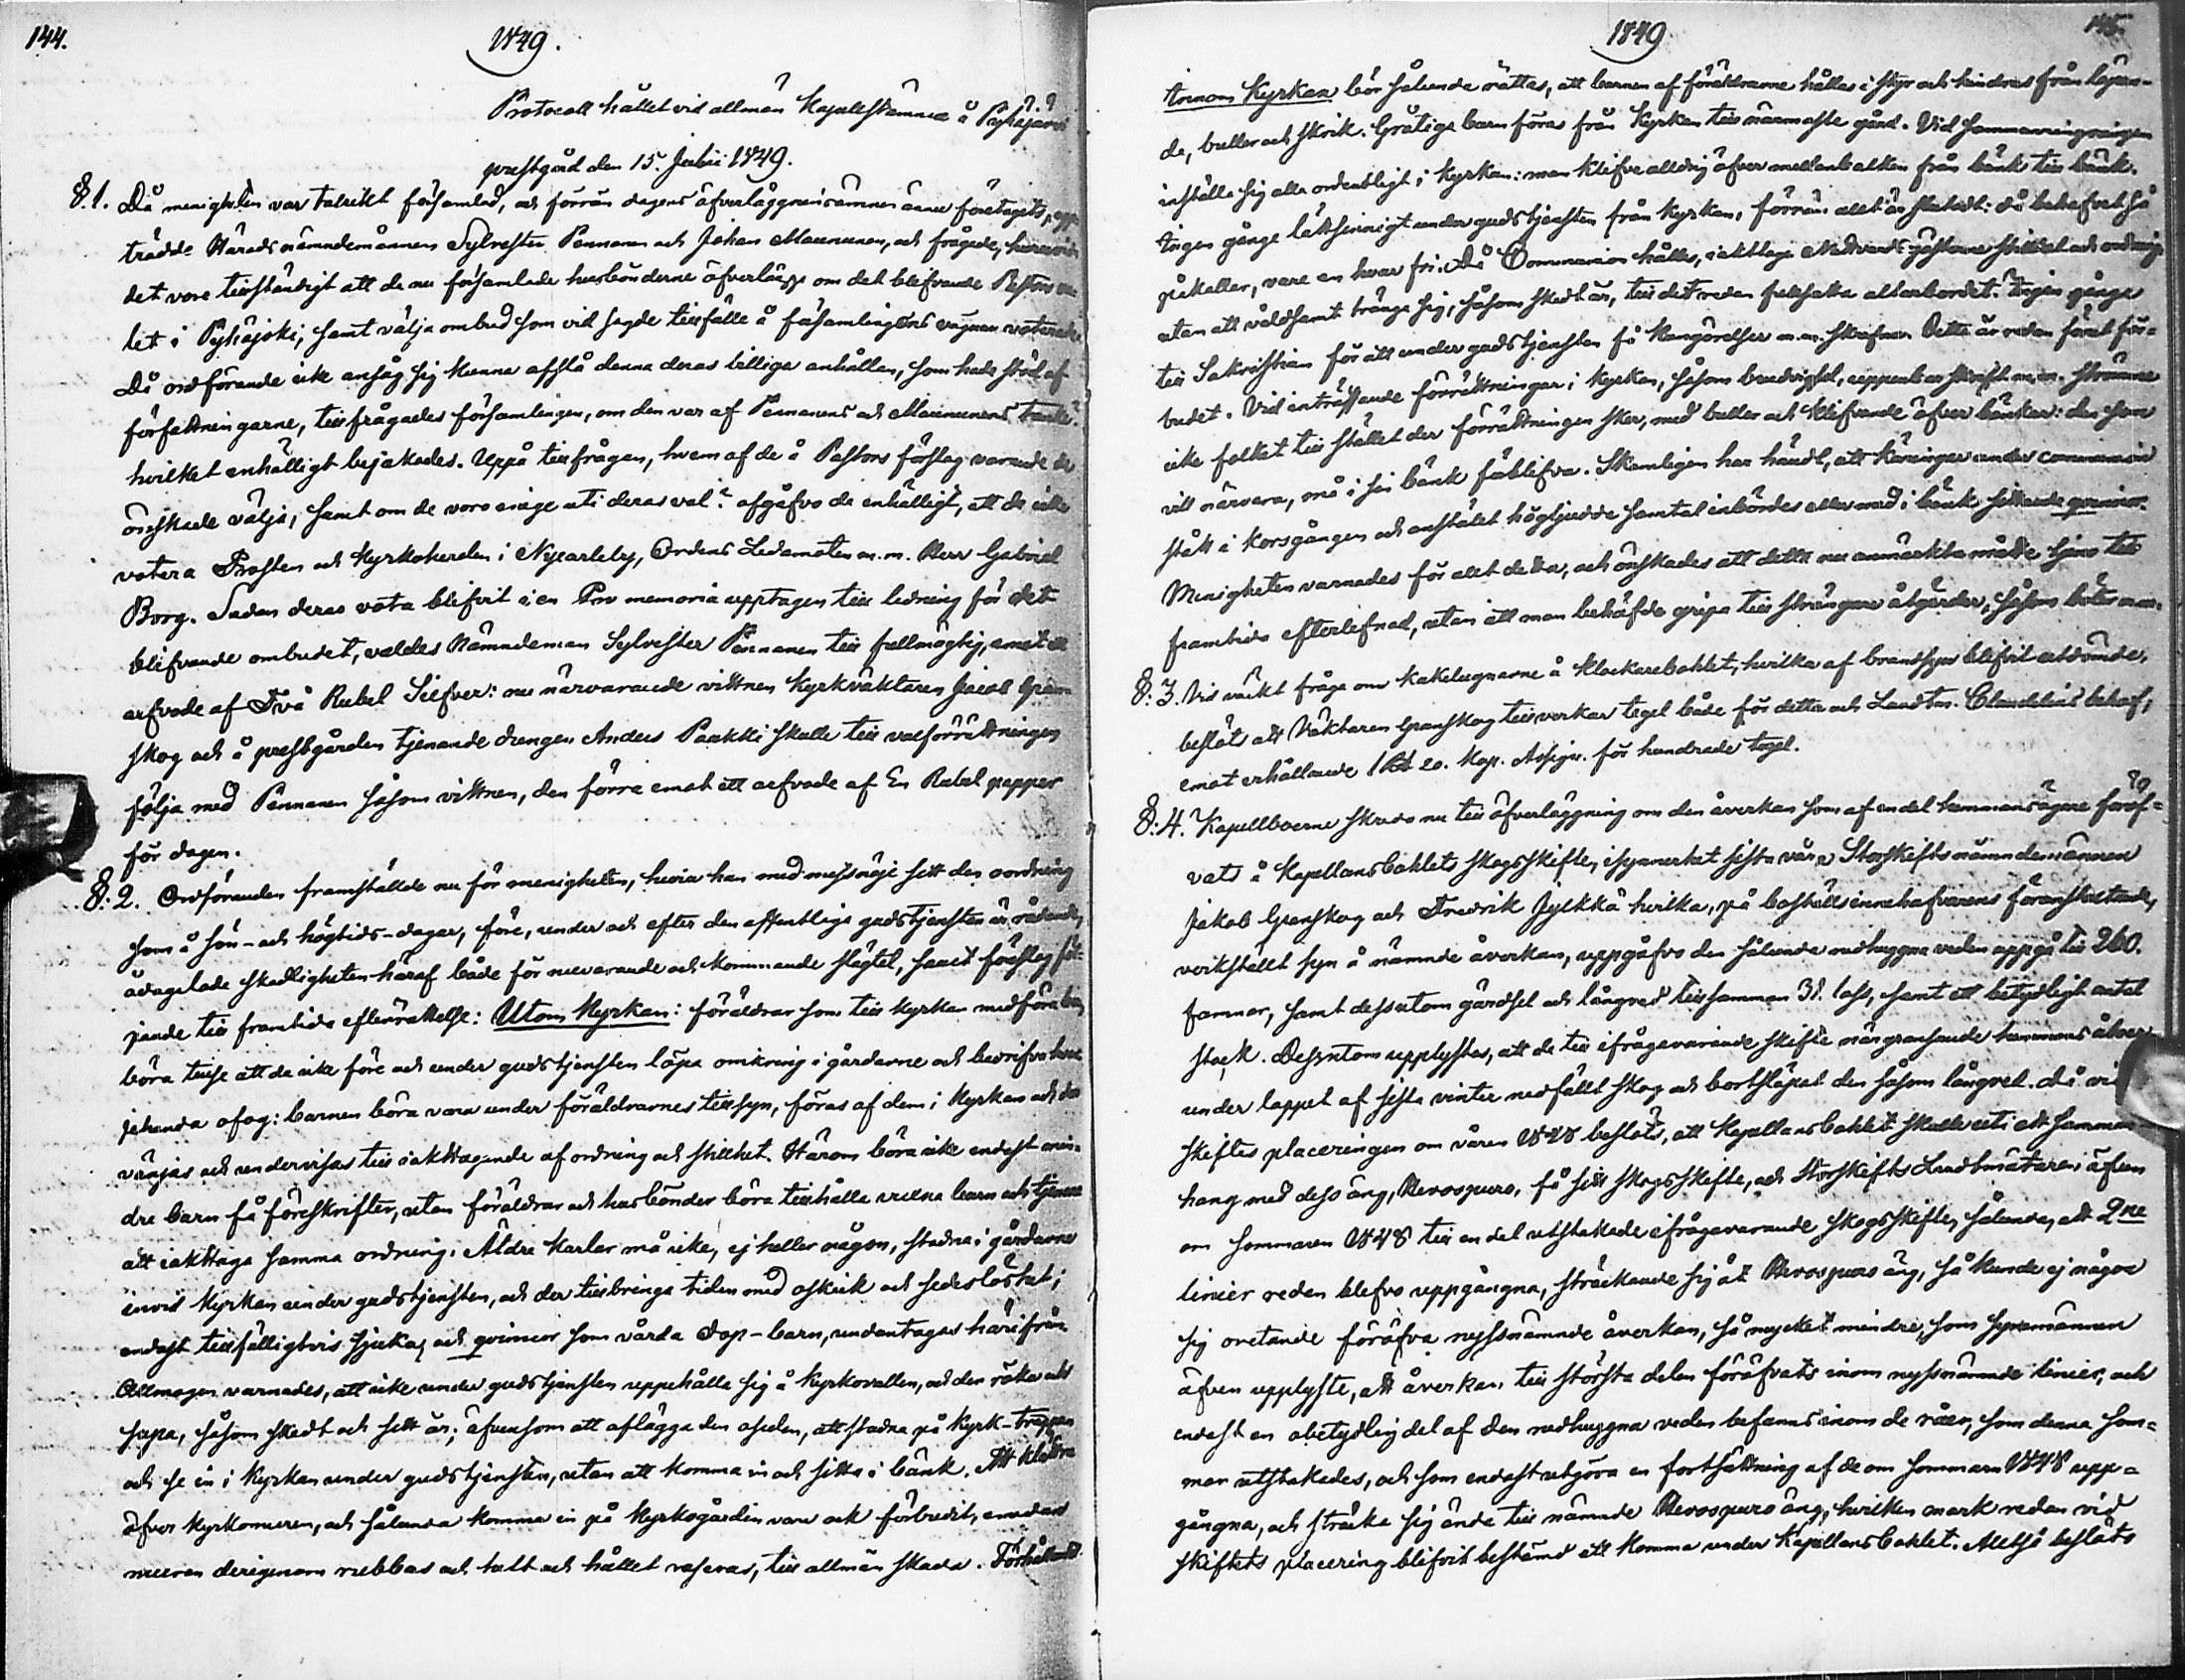 144.
1849.
Protocoll hållet vid allmän Kapellstämma å Pyhäjärvi
prestgård den 15. Julii 1849.
§.1. Då menigheten var talrikt församlad, och förrän dagens öfverläggningsämnen ännu företagits, upp-
trädde Häradsnämndemännen Sylvester Pennanen och Johan Maununen, och frågade, huruvida
det vore tillständigt att de nu församlade husbönderne öfverlägga om det blifvande Pastors va-
let i Pyhäjoki, samt välja ombud som vid sagde tillfälle å församlingens vägnar voterade.
Då ordförande icke ansåg sig kunna afslå denna deras billiga anhållan, som hade stöd af
författningarne, tillfrågades församlingen, om den var af Pennanens och Maununens tanke?
hvilket enhälligt bejakades. Uppå tillfrågan, hvem af de å Pastors förslag varande de
önskade välja, samt om de voro eniga uti deras val? afgåfvo de enhälligt, att de ville
votera Prosten och Kyrkoherden i Nycarleby, Ordens Ledamoten m.m. Herr Gabriel
Borg. Sedan deras vota blifvit i en Pro memoria upptagen till ledning för det
blifvande ombudet, valdes Nämndeman Sylvester Pennanen till fullmägtig, emot ett
arfvode af Två Rubel Silfver: nu närvarande vittnen Kyrkväktaren Jacob Gran-
skog och å prestgården tjenande drengen Anders Paakki skulle till valförrättningen
följa med Pennanen såsom vittnen, den förre emot ett arfvode af En Rubel papper
för dagen.
§.2. Ordföranden framställde nu för menigheten, huru han med missnöje sett den oordning
som å sön- och högtids-dagar, före, under och efter den offentliga gudstjensten är rådande,
ådagalade skadligheten häraf både för nuvarande och kommande slägtet, samt föreslog föl-
jande till framtida efterrättelse: Utom Kyrkan: föräldrar som till Kyrkan medföra barn
böra tillse att de icke före och under gudstjensten löpa omkring i gårdarne och bedrifva
jehanda ofog: barnen böra vara under föräldrarnes tillsyn, föras af dem i Kyrkan och der
vänjas och undervisas till iakttagande af ordning och stillhet. Härom böra icke endast min-
dre barn få föreskrifter, utan föräldrar och husbönder böra tillhålla vuxna barn och tjenare
att iakttaga samma ordning. Äldre karlar må icke, ej heller någon, stadna i gårdarne
invid Kyrkan under gudstjensten, och der tillbringa tiden med oskick och sedeslöshet;
endast tillfälligtvis sjuka, och qvinnor som vårda dop-barn, undantagas härifrån.
Allmogen varnades, att icke under gudstjensten uppehålla sig å Kyrkovallen, och der röka och
supa, såsom skedt och sett är; äfvensom att aflägga den oseden, att stadna på Kyrk-trappan
och se in i Kyrkan under gudstjensten, utan att komma in och sitta i bänk. Att klättra
öfver Kyrkomuren, och sålunda komma in på Kyrkogården vare ock förbudit, emedan
muren derigenom rubbas och helt och hållet raseras, till allmän skada. Förhållandet
1849
145.
innom Kyrkan bör sålunda rättas, att barnen af föräldrarne hållas i styr och hindras från löpan-
de, buller och skrik. Gråtiga barn föras från Kyrkan till närmaste gård. Vid sammanringningen
inställe sig alla ordentligt i Kyrkan: man klifve alldrig öfver mellanbalken från bänk till bänk.
Ingen gånge lättsinnigt under gudstjensten från Kyrkan, förrän allt är slutadt: då behofvet så
påkallar, vare en hvar fri. Då Communion hålles, iakttage Nattvards gästerne stillhet och ordning
utan att våldsamt tränge sig, såsom skedt är, till det redan fullsatta altarbordet. Ingen gånge
till Sakristian för att under gudstjensten få kungörelser m.m. skrifne. Detta är redan förut för-
budet. Vid inträffande förrättningar i Kyrkan, såsom brudvigsel, uppenbar skrift m.m. strömme
icke folket till stället der förrättningen sker, med buller och klifvande öfver bänkar: den som
vill närvara, må i sin bänk förblifva. Skamligen har händt, att käringar under communion
stått i korsgången och anställt högljudde samtal inbördes eller med i bänk sittande qvinnor.
Menigheten varnades för allt detta, och önskades att detta nu anmärkta måtte tjena till
framtida efterlefnad, utan att man behöfde gripa till strängare åtgärder, såsom böter m.m.
§.3. Vid väckt fråga om kakelugnarne å Klockarebohlet, hvilka af brandsyn blifvit utdömde,
beslöts att Väktaren Granskog tillverkar tegel både för detta och Landtm. Claudelins behof,
emot erhållande 1 Rb 20. Kop. Assign. för hundrade tegel.
§.4. Kapellboerne skredo nu till öfverläggning om den åverkan som af en del hemmansägare föröf-
vats å Kapellansbohlets skogsskifte, isynnerhet sista vår. Storskifts nämndemännen
Jakob Granskog och Fredrik Jylkkä hvilka, på boställsinnehafvarens föranstaltande,
verkställt syn å nämnde åverkan, uppgåfvo den sålunda nedhuggna veden uppgå till 260.
famnar, samt dessutom gärdsel och långved tillsamman 31. lass, samt ett betydligt antal
stock. Dessutom upplystes, att de till ifrågavarande skifte närgränsande hemmans åboer
under loppet af sista vinter nedfällt skog och bortsläpat den såsom långved. Då vid
skiftes placeringen om våren 1848 beslöts, att Kapellansbohlet skulle uti ett samman-
hang med dess äng, Revospuro, få sitt skogsskifte, och Storskifts Landtmätaren äfven
om sommaren 1848 till en del utstakade ifrågavarande skogsskifte, sålunda, att 2ne
linier redan blefvo uppgångna, sträckande sig åt Revospuro äng, så kunde ej någon
sig ovetande föröfva nyssnämnde åverkan, så mycket mindre, som synemännen
äfven upplyste, att åverkan till största delen föröfvats inom nyssnämnde linier, och
endast en obetydlig del af den nedhuggna veden befanns inom de råer, som denna som-
mar utstakades, och som endast utgöra en fortsättning af de om sommaren 1848 upp-
gångna, och sträcka sig ända till nämnde Revospuro äng, hvilken mark redan vid
skiftets placering blifvit bestämd att komma under Kapellansbohlet. Alltså beslöts